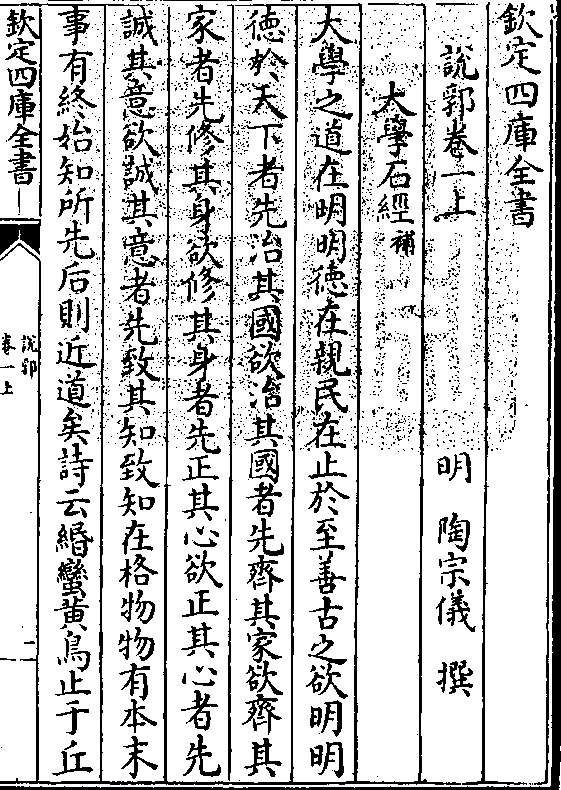 欽定四庫全書
說郛卷一上
明 陶宗儀 撰
大學石經補
大學之道在明明德在親民在止於至善古之欲明明
德於天下者先治其國欲治其國者先齊其家欲齊其
家者先修其身欲修其身者先正其心欲正其心者先
誠其意欲誠其意者先致其知致知在格物物有本末
事有終始知所先后則近道矣詩云緡蠻黄鳥止于丘
欽定四庫全書
說郛
卷一上
一